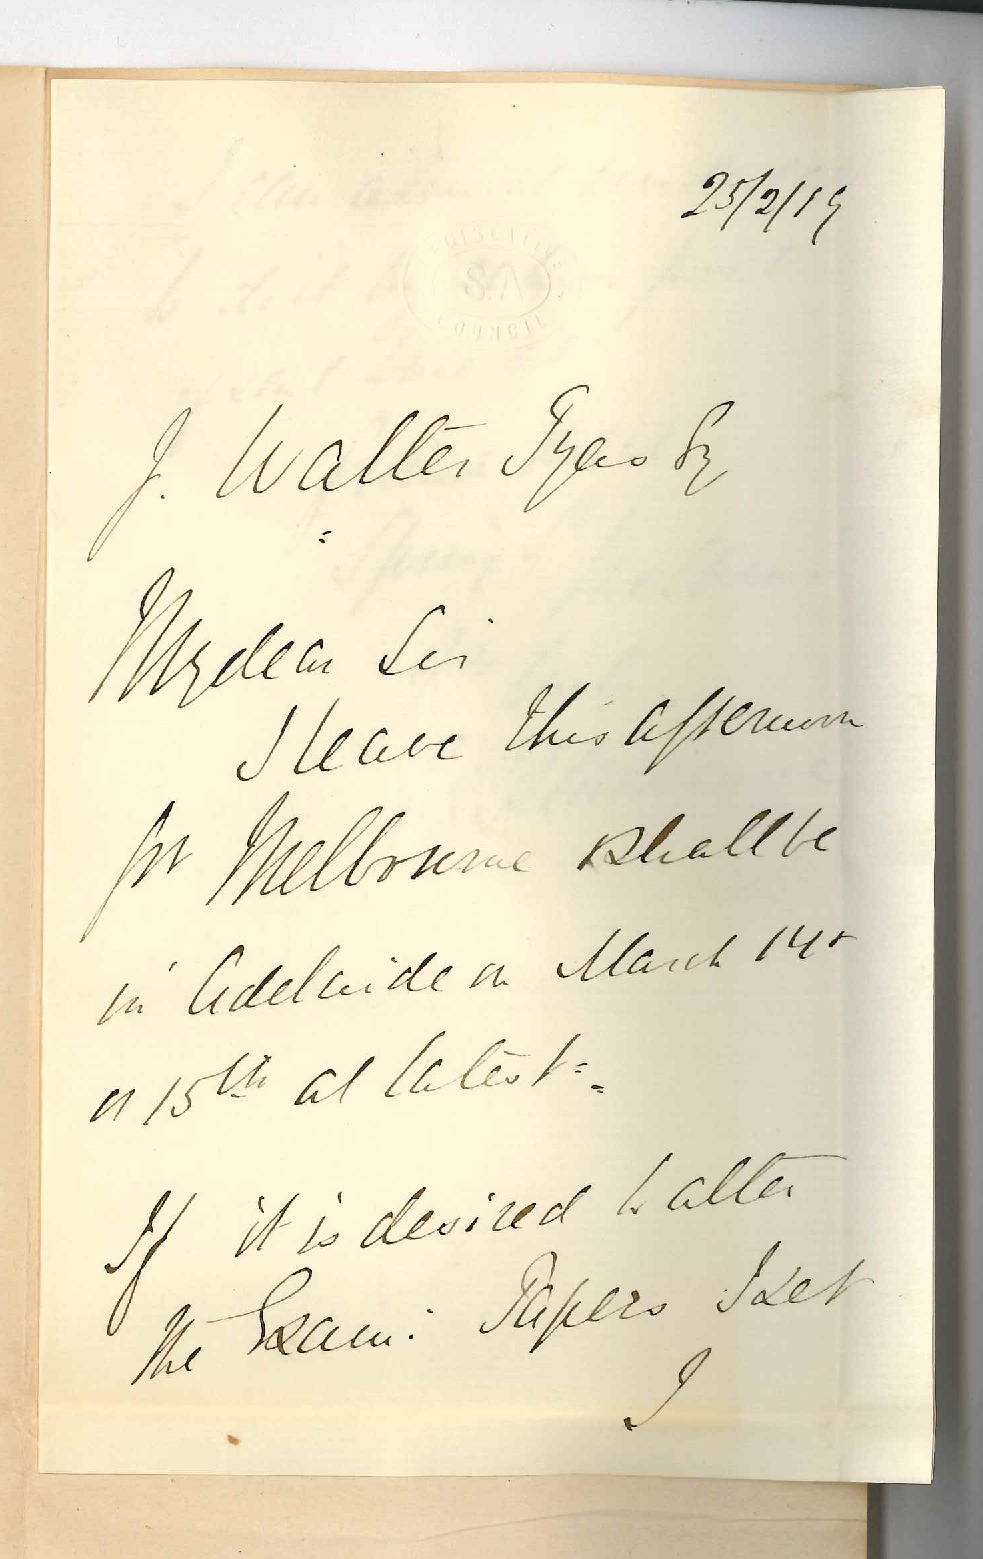 25/2/19
LEGISLATIVE
S.A.
COUNCIL
J. Walter Tyas Esq
My dear Sir
I leave this afternoon
for Melbourne shall be
in Adelaide on March 14th
or 15th at latest.
If it is desired to alter
the Exam: Papers I set
I